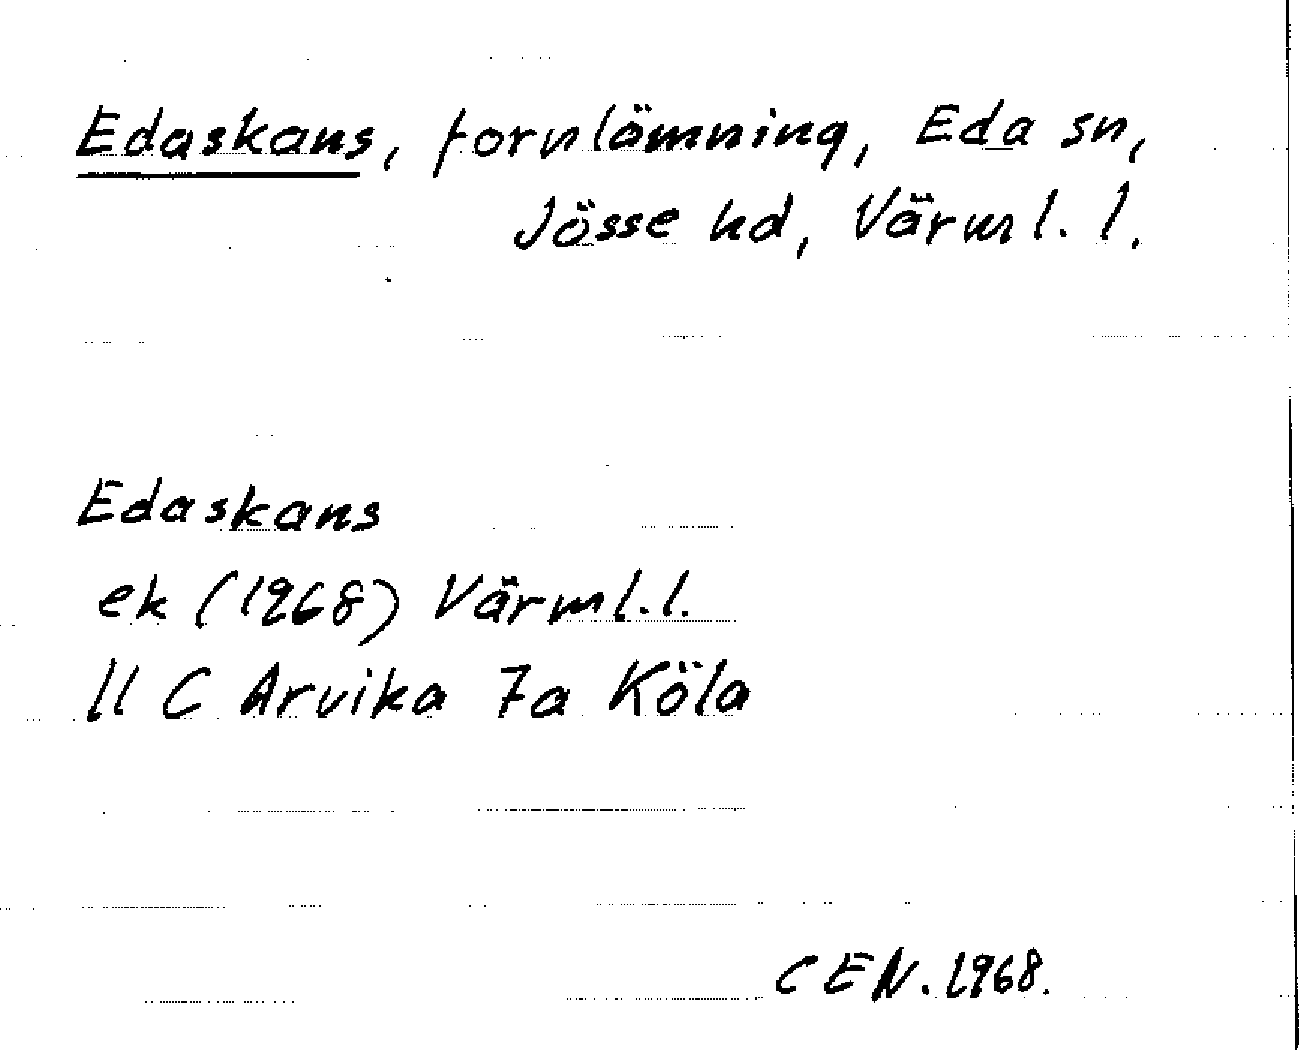 Edaskans, fornlämning, Eda sn,
Jösse hd, Värml. l.
Edaskans
ek (1968) Värml. l.
11 C Arvika 7a Köla
CEN. 1968.